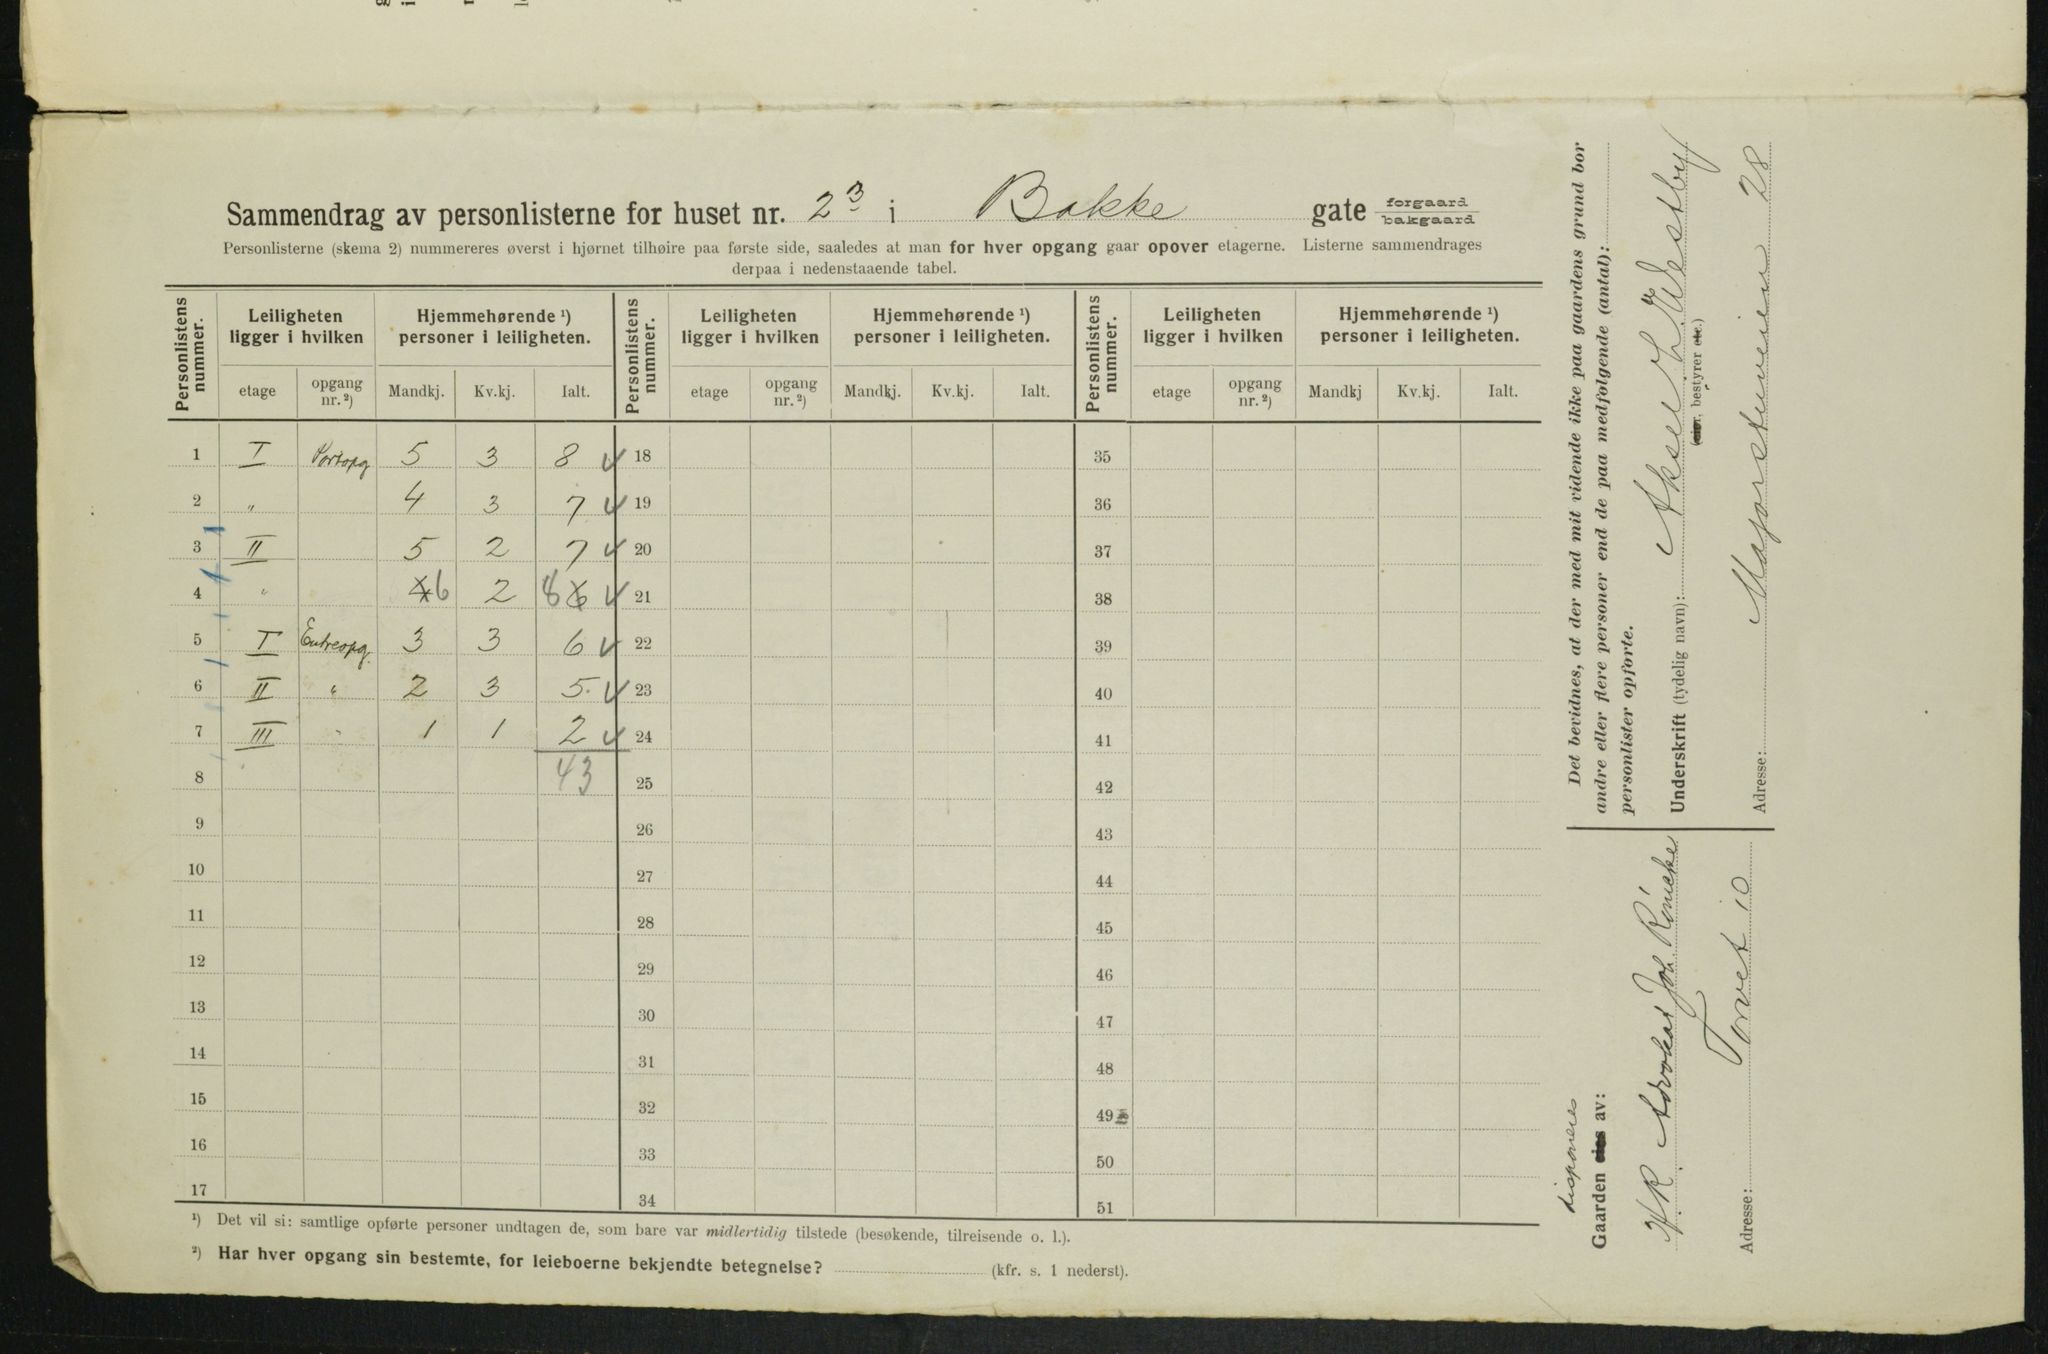 Sammendrag av personlisterne for huset nr. 23 i Bakke gate forgaard bakgaard
Personlisterne (skema 2) nummereres øverst i hjørnet tilhøire paa første side, saaledes at man for hver opgang gaar opover etagerne. Listerne sammendrages
derpaa i nedenstaaende tabel.
Personlistens nummer. Leiligheten ligger i hvilken Hjemmehørende ¹) personer i leiligheten. Personlistens nummer. Leiligheten ligger i hvilken Hjemmehørende ¹) personer i leiligheten. Personlistens nummer. Leiligheten ligger i hvilken Hjemmehørende ¹) personer i leiligheten.
etage opgang nr. ²) Mandkj. Kv.kj. Ialt. etage opgang nr. ²) Mandkj. Kv.kj. Ialt. etage opgang nr. ²) Mandkj Kv.kj. Ialt.
1 I Portopg 5 3 8 18 35
2 " 4 3 7 19 36
3 II 5 2 7 20 37
4 " 6 2 8 21 38
5 I Entreopg. 3 3 6 22 39
6 II " 2 3 5. 23 40
7 III " 1 1 2 24 41
8 43 25 42
9 26 43
10 27 44
11 28 45
12 29 46
13 30 47
14 31 48
15 32 49
16 33 50
17 34 51
¹) Det vil si: samtlige opførte personer undtagen de, som bare var midlertidig tilstede (besøkende, tilreisende o. l.).
²) Har hver opgang sin bestemte, for leieboerne bekjendte betegnelse? (kfr. s. 1 nederst).
Det bevidnes, at der med mit vidende ikke paa gaardens grund bor
andre eller flere personer end de paa medfølgende (antal):
personlister opførte.
Underskrift (tydelig navn): Aksel Westby
(eier, bestyrer etc.)
Adresse: Majorstuveien 28
disponeres
Gaarden eies av:
HR Advokat Joh. Rönneke
Adresse: Torvet 10